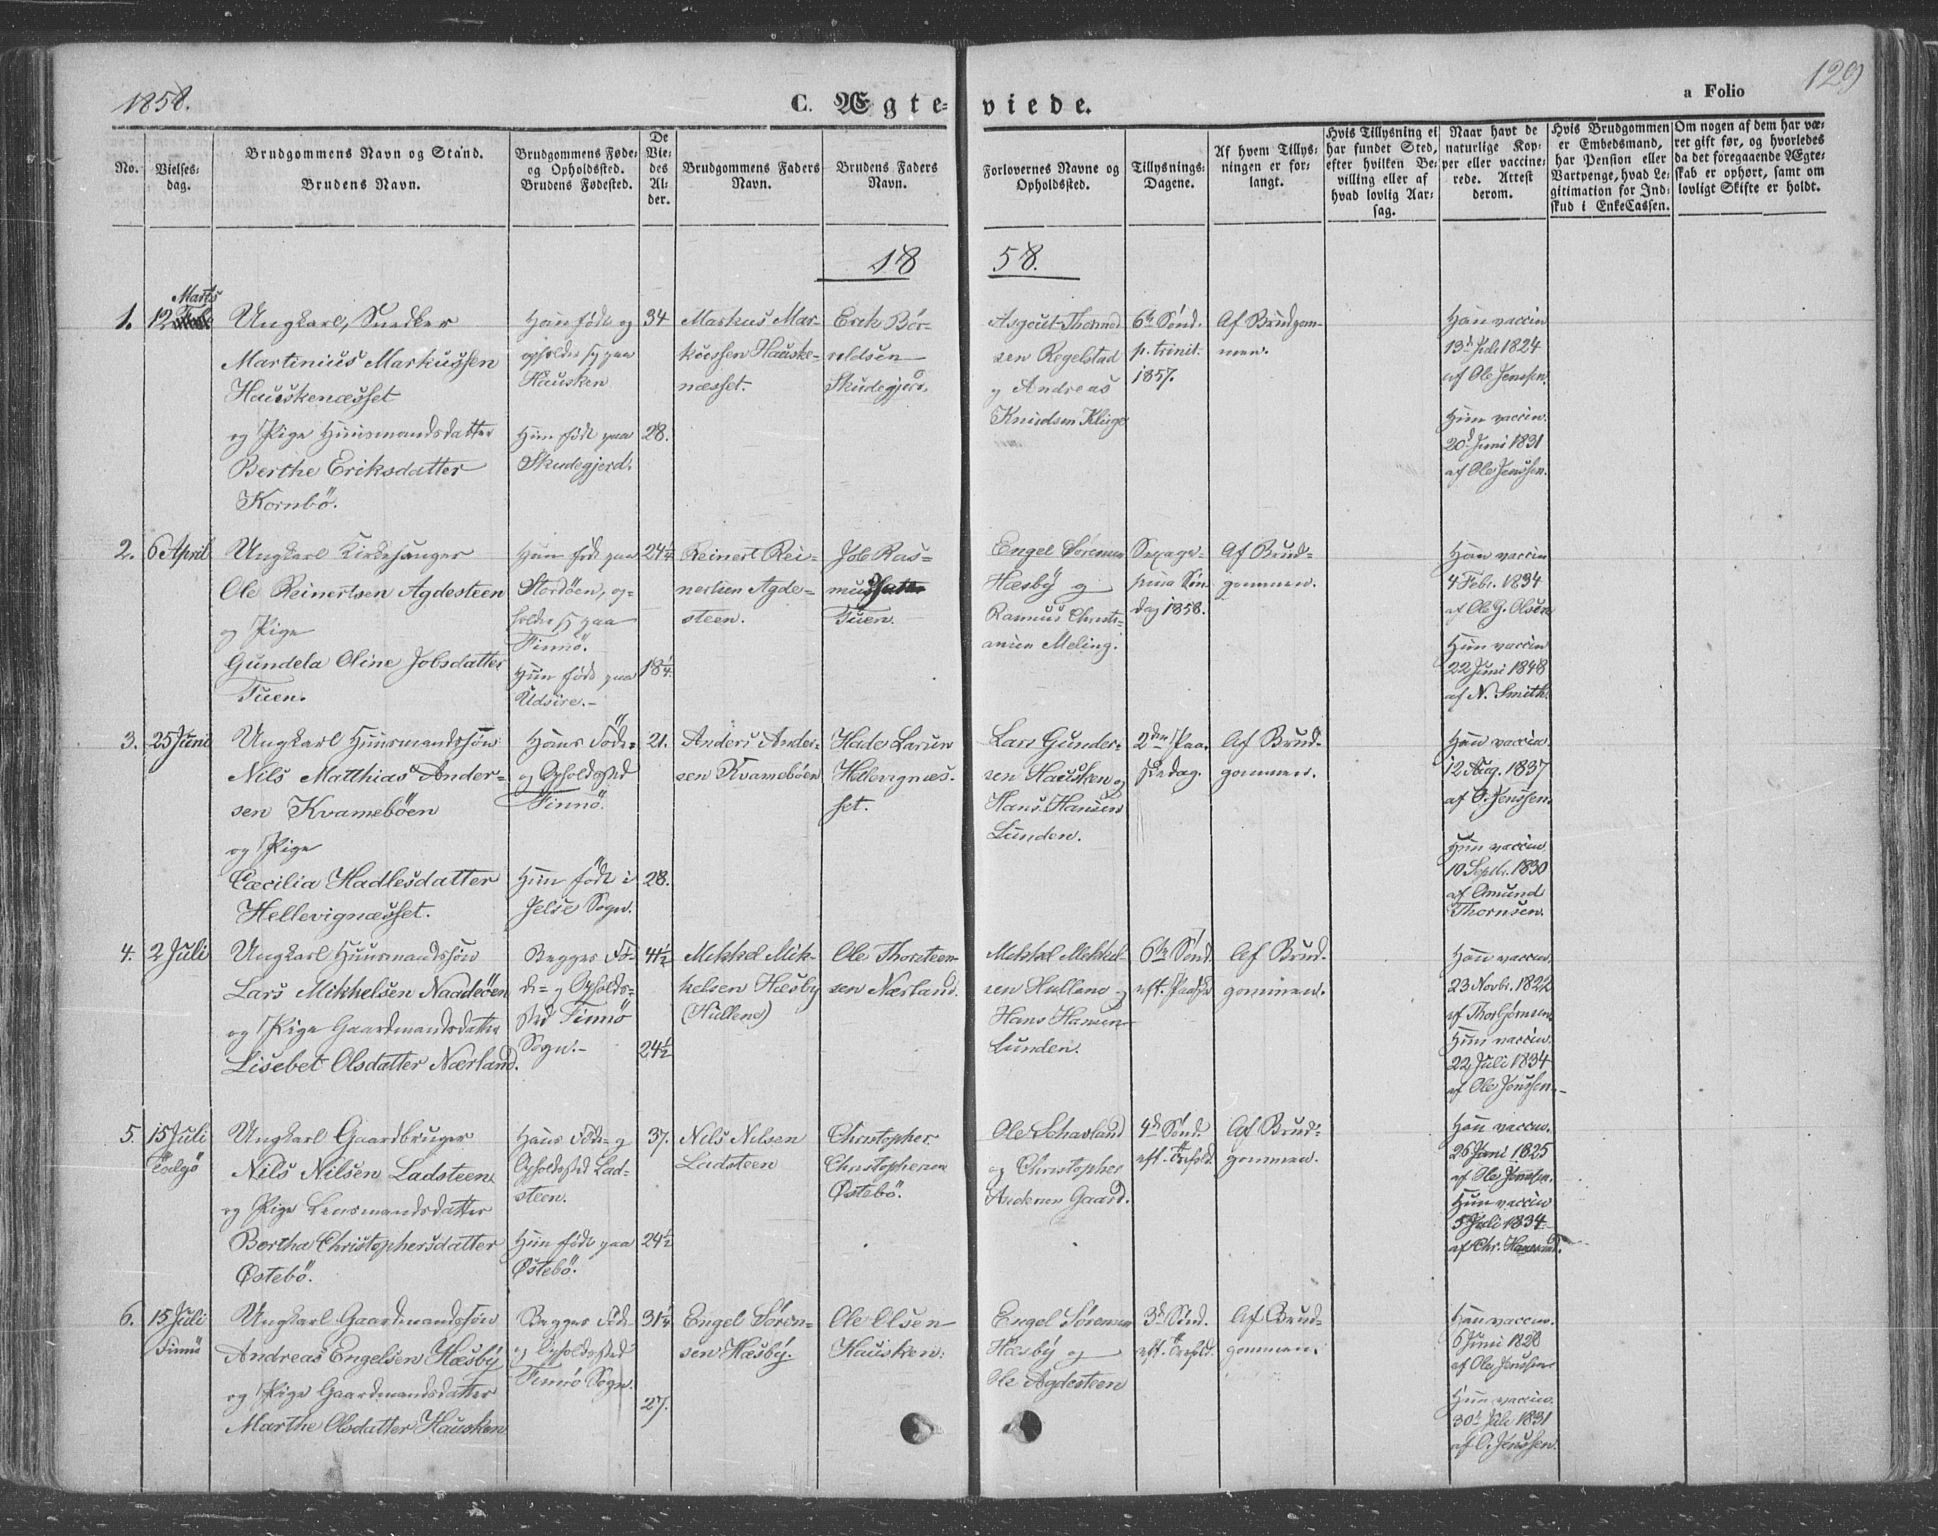 1858.
C. Ægte-
viede.
a Folio
129
No.
Vielses-
dag.
Brudgommens Navn og Stand.
Brudens Navn.
Brudgommens Føde-
og Opholdssted.
Brudens Fødested.
De
Vie-
des
Al-
der.
Brudgommens Faders
Navn.
Brudens Faders
Navn.
Forlovernes Navne og
Opholdssted.
Tillysnings-
Dagene.
Af hvem Tillys-
ningen er for-
langt.
Hvis Tillysning ei
har fundet Sted,
efter hvilken Be-
villing eller af
hvad lovlig Aar-
sag.
Naar havt de
naturlige Kop-
per eller vaccine-
rede. Attest
derom.
Hvis Brudgommen
er Embedsmand,
har Pension eller
Vartpenge, hvad Le-
gitimation for Ind-
skud i EnkeCassen.
Om nogen af dem har væ-
ret gift før, og hvorledes
da det foregaaende Ægte-
skab er ophørt, samt om
lovligt Skifte er holdt.
18
58.
1.
Marts
12
Ungkarl, Snedker
Martinius Markussen
Hauskenæsset
og Pige Huusmandsdatter
Berthe Eriksdatter
Kornbö.
Han født og
opholder sig paa
Hausken
Hun født paa
Skudegjerd.
34
28.
Markus Mar-
kussen Hauske-
næsset.
Erik Bör-
ildsen
Skudegjerd.
Asgout Thormod
sen Regelstad
og Andreas
Knudsen Kluge
6te Sönd.
p. trinit.
1857.
Af Brudgom-
men.
Han vaccin
13de Juli 1824
af Ole Jenssen.
Hun vaccin.
20de Juni 1831
af Ole Jenssen.
2.
6 April
Ungkarl Kirkesanger
Ole Reinertsen Agdesteen
og Pige
Gundela Oline Jobsdatter
Tuen.
Han født paa
Stordöen, op-
holder sig paa
Finnö.
Hun født paa
Udsire.-
24 1/4
18 1/4
Reinert Rei-
nertsen Agde-
steen.
Job Ras-
mus
Tuen.
Engel Sörensen
Hæsby og
Rasmus Christi-
ansen Meling.
Sexage-
sima Søn
dag 1858.
Af Brud-
gommen.
Han vaccin
4 Febr. 1834
af Ole G. Olsen
Hun vaccin
22 Juni 1848
af N. Smith.
3.
25 Juni
Ungkarl Huusmandssön
Nils Matthias Ander-
sen Kvameböen
og Pige
Cæcilia Hadlesdatter
Hellevignæsset.
Hans Föde-
og Opholdssted
Finnö.
Hun født i
Jelse Sogn.
21.
28.
Anders Ander-
sen Kvameböen
Hadle Larsen
Hellevignæs-
set.
Lars Gunder-
sen Hausken og
Hans Hansen
Lunden.
2den Paa-
skedag.
Af Brud-
gommen.
Han vaccin.
12 Aug. 1837
af O. Jenssen
Hun vaccin.
10 Septb. 1830
af Amund
Thornsen.
4.
2 Juli
Ungkarl Huusmandssön
Lars Mikkelsen Naadeöen
og Pige Gaardmandsdatter
Lisebet Olsdatter Nærland.
Begges Fö-
de- og Opholds-
sted Finnö
Sogn.-
41 1/2
24 1/2
Mikkel Mik-
kelsen Hæsby
(Hullene)
Ole Thorsteen-
sen Nærland.
Mikkel Mikkel-
sen Hullene og
Hans Hansen
Lunden.
6te Sönd.
eft. Paaske
Af Brud-
gommen.
Han vaccin.
23 Novbr. 1822
af Thor Görnsen
Hun vaccin.
22 Juli 1834
af Ole Jenssen.
5.
15 Juli
Talgö
Ungkarl Gaardbruger
Nils Nilsen Ladsteen
og Pige Lensmandsdatter
Bertha Christophersdatter
Østebö.
Hans Föde- og
Opholdssted Lad-
steen.
Hun født paa
Østebö.
37.
24 1/2
Nils Nilsen
Ladsteen
Christopher
Christophersen
Østebö.
Ole Schavland
og Christopher
Andersen Gaard.
4de Sönd.
eft. Trefold.
Af Brud-
gommen.
Han vaccin.
26 Juni 1825
af Ole Jenssen.
Hun vaccin
5 Juli 1834
af Chr.
6.
15 Juli
Finnö
Ungkarl Gaardmandssön
Andreas Engelsen Hæsby
og Pige Gaardmandsdatter
Marthe Olsdatter Hausken
Begges Föde-
og Opholdssted
Finnö Sogn.
31 1/4
27.
Engel Sören-
sen Hæsby.
Ole Olsen
Hausken.
Engel Sörensen
Hæsby og
Ole Agdesteen
3de Sönd.
eft. Trefold.
Af Brud-
gommen.
Han vaccin.
6 Juni 1828
af Ole Jenssen
Hun vaccin.
30te Juli 1831
af O. Jenssen.